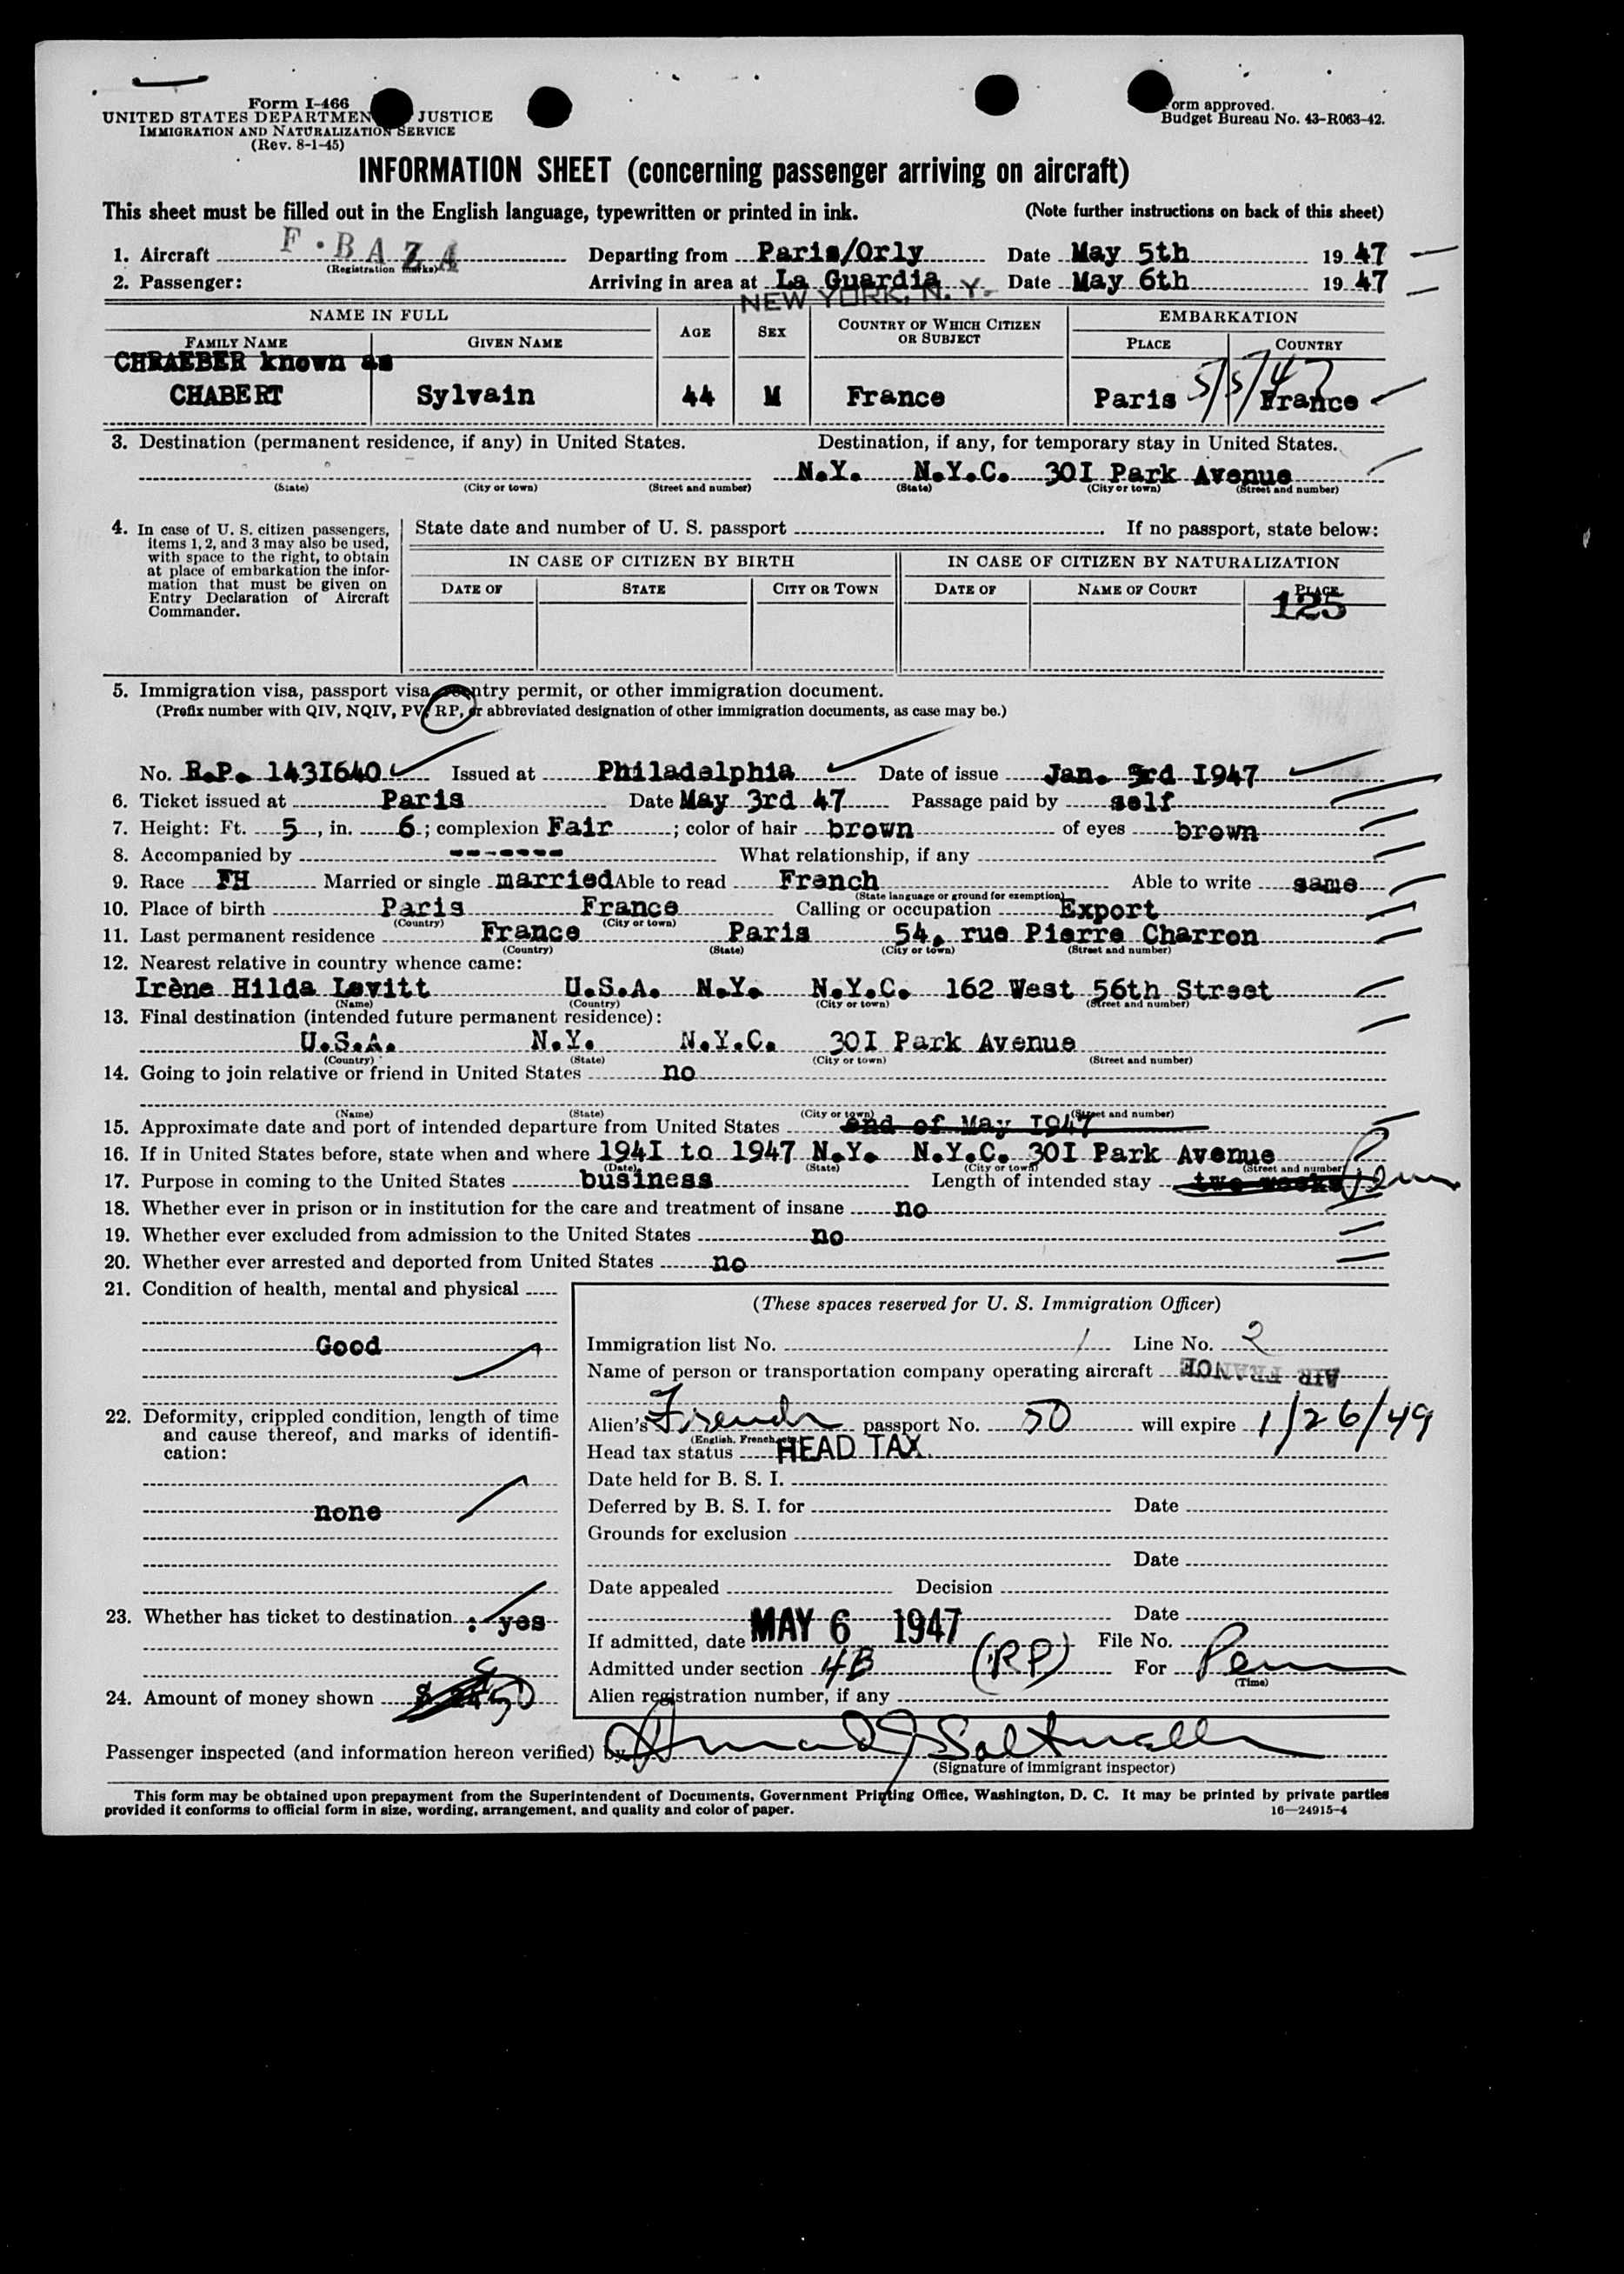 Form I-466
UNITED STATES DEPARTMEN JUSTICE
IMMIGRATION AND NATURALIZATION SERVICE
(Rev. 8-1-45)
orm approved.
Budget Bureau No. 43-R063-42.
INFORMATION SHEET (concerning passenger arriving on aircraft)
This sheet must be filled out in the English language, typewritten or printed in ink. (Note further instructions on back of this sheet)
1. Aircraft F·BAZA Departing from Paris/Orly Date May 5th 1947
(Registration marks)
2. Passenger: Arriving in area at La Guardia Date May 6th 1947
NEW YORK, N. Y.
NAME IN FULL AGE SEX COUNTRY OF WHICH CITIZEN OR SUBJECT EMBARKATION
FAMILY NAME GIVEN NAME PLACE COUNTRY
CHRAEBER known as
CHABERT Sylvain 44 M France Paris 5/5/47 France
3. Destination (permanent residence, if any) in United States. Destination, if any, for temporary stay in United States.
N.Y. N.Y.C. 30I Park Avenue
(State) (City or town) (Street and number) (State) (City or town) (Street and number)
4. In case of U. S. citizen passengers, items 1, 2, and 3 may also be used, with space to the right, to obtain at place of embarkation the information that must be given on Entry Declaration of Aircraft Commander.
State date and number of U. S. passport If no passport, state below:
IN CASE OF CITIZEN BY BIRTH IN CASE OF CITIZEN BY NATURALIZATION
DATE OF STATE CITY OR TOWN DATE OF NAME OF COURT PLACE
125
5. Immigration visa, passport visa, reentry permit, or other immigration document.
(Prefix number with QIV, NQIV, PV, RP, or abbreviated designation of other immigration documents, as case may be.)
No. R.P. 143I640 Issued at Philadelphia Date of issue Jan. 3rd I947
6. Ticket issued at Paris Date May 3rd 47 Passage paid by self
7. Height: Ft. 5, in. 6; complexion Fair; color of hair brown of eyes brown
8. Accompanied by ------- What relationship, if any
9. Race FH Married or single married Able to read French Able to write same
(State language or ground for exemption)
10. Place of birth Paris France Calling or occupation Export
(Country) (City or town)
11. Last permanent residence France Paris 54, rue Pierre Charron
(Country) (State) (City or town) (Street and number)
12. Nearest relative in country whence came:
Irène Hilda Levitt U.S.A. N.Y. N.Y.C. 162 West 56th Street
(Name) (Country) (City or town) (Street and number)
13. Final destination (intended future permanent residence):
U.S.A. N.Y. N.Y.C. 30I Park Avenue
(Country) (State) (City or town) (Street and number)
14. Going to join relative or friend in United States no
(Name) (State) (City or town) (Street and number)
15. Approximate date and port of intended departure from United States end of May I947
16. If in United States before, state when and where 194I to 1947 N.Y. N.Y.C. 30I Park Avenue
(Date) (State) (City or town) (Street and number)
17. Purpose in coming to the United States business Length of intended stay two weeks Perm
18. Whether ever in prison or in institution for the care and treatment of insane no
19. Whether ever excluded from admission to the United States no
20. Whether ever arrested and deported from United States no
21. Condition of health, mental and physical
Good
22. Deformity, crippled condition, length of time and cause thereof, and marks of identification:
none
23. Whether has ticket to destination : yes
24. Amount of money shown $ 50
(These spaces reserved for U. S. Immigration Officer)
Immigration list No. 1 Line No. 2
Name of person or transportation company operating aircraft AIR FRANCE
Alien's French passport No. 50 will expire 1/26/49
(English, French, etc.)
Head tax status HEAD TAX
Date held for B. S. I.
Deferred by B. S. I. for Date
Grounds for exclusion
Date
Date appealed Decision
Date
If admitted, date MAY 6 1947 File No.
Admitted under section 4B (RP) For Perm
(Time)
Alien registration number, if any
Passenger inspected (and information hereon verified) by
(Signature of immigrant inspector)
This form may be obtained upon prepayment from the Superintendent of Documents, Government Printing Office, Washington, D. C. It may be printed by private parties
provided it conforms to official form in size, wording, arrangement, and quality and color of paper. 16—24915-4